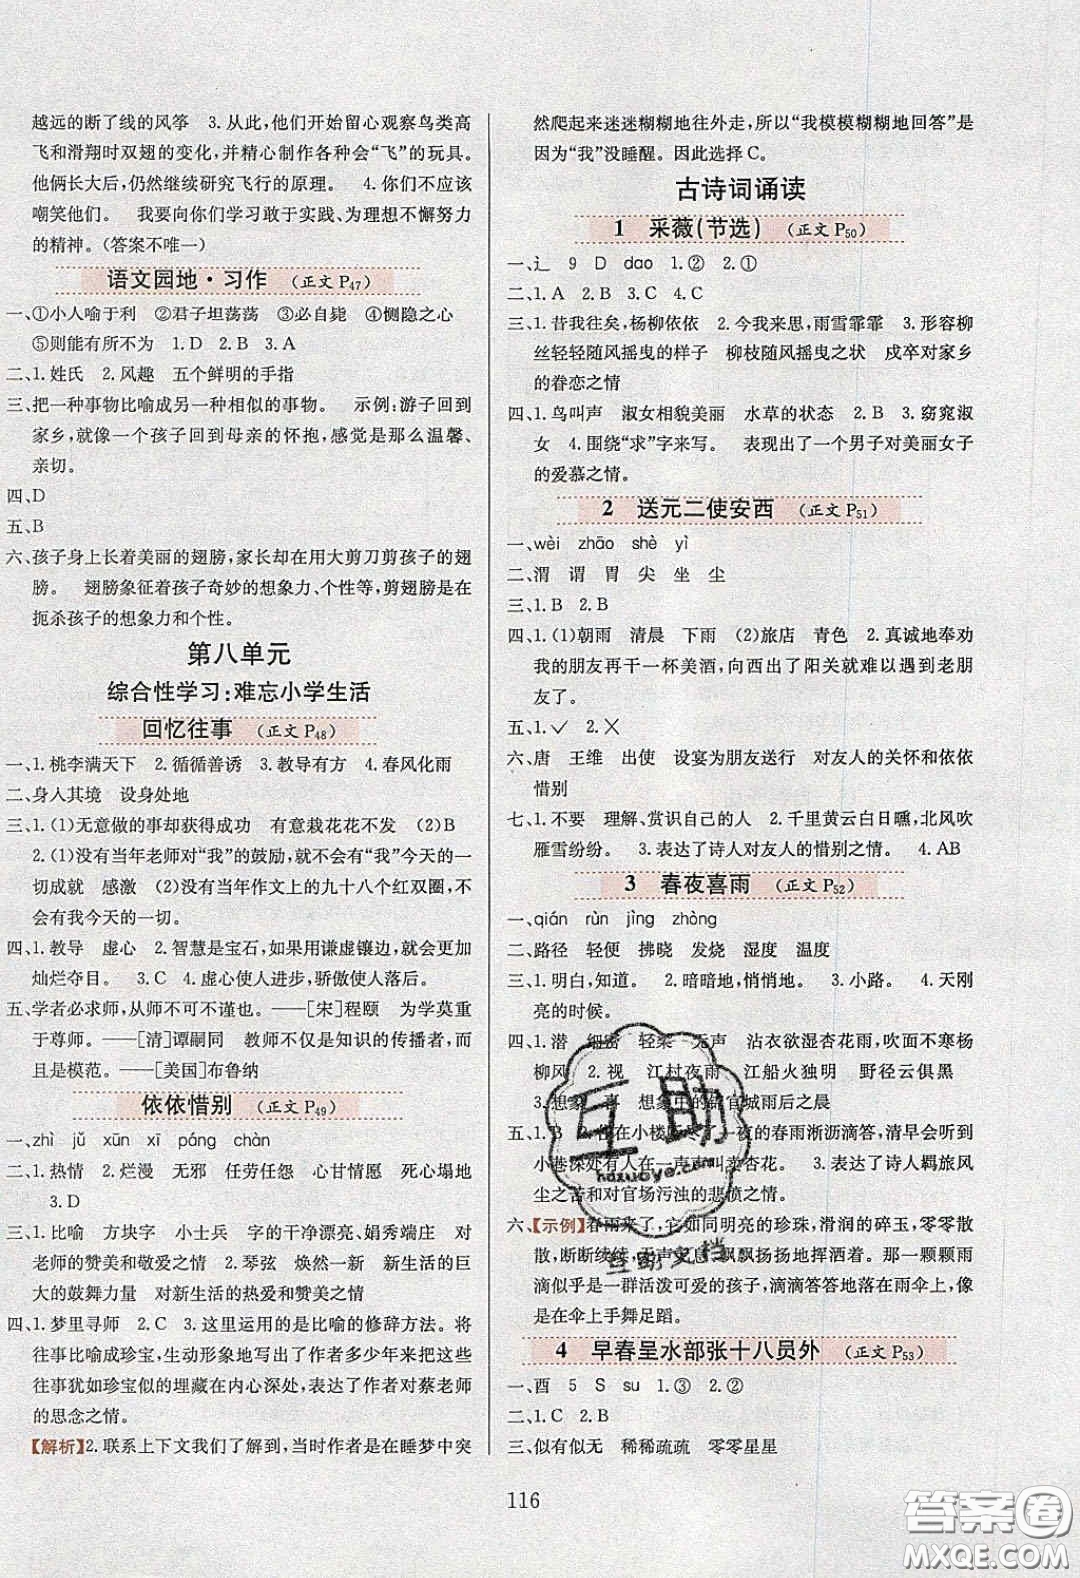 越远的断了线的风筝　3.从此,他们开始留心观察鸟类高
飞和滑翔时双翅的变化,并精心制作各种会“飞”的玩具。
他俩长大后,仍然继续研究飞行的原理。　4.你们不应该
嘲笑他们。　我要向你们学习敢于实践、为理想不懈努力
的精神。(答案不唯一)
语文园地·习作　(正文 P47)
一、①小人喻于利　②君子坦荡荡　③必自毙　④恻隐之心
⑤则能有所不为　1.D　2.B　3.A
二、1.姓氏　2.风趣　五个鲜明的手指
三、把一种事物比喻成另一种相似的事物。　示例:游子回到
家乡,就像一个孩子回到母亲的怀抱,感觉是那么温馨、
亲切。
四、D
五、B
六、孩子身上长着美丽的翅膀,家长却在用大剪刀剪孩子的翅
膀。　翅膀象征着孩子奇妙的想象力、个性等,剪翅膀是在
扼杀孩子的想象力和个性。
第八单元
综合性学习:难忘小学生活
回忆往事　(正文 P48)
一、1.桃李满天下　2.循循善诱　3.教导有方　4.春风化雨
二、身人其境　设身处地
三、1.(1)无意做的事却获得成功　有意栽花花不发　(2)B
2.(1)没有当年老师对“我”的鼓励,就没有“我”今天的一
切成就　感激　(2)没有当年作文上的九十八个红双圈,就
没有我今天的一切。
四、1.教导　虚心　2.智慧是宝石,如果用谦虚镶边,就会更加
灿烂夺目。　3.C　4.虚心使人进步,骄傲使人落后。
五、学者必求师,从师不可不谨也。——[宋]程颐　为学莫重
于尊师。——[清]谭嗣同　教师不仅是知识的传播者,而
且是模范。——[美国]布鲁纳
依依惜别　(正文 P49)
一、zhì　jǔ　xūn　xī　páng　chàn
二、1.热情　2.烂漫　无邪　任劳任怨　心甘情愿　死心塌地
3.D
三、1.比喻　方块字　小士兵　字的干净漂亮、娟秀端庄　对
老师的赞美和敬爱之情　2.琴弦　焕然一新　新生活的巨
大的鼓舞力量　对新生活的热爱和赞美之情
四、1.梦里寻师　2.C　3.这里运用的是比喻的修辞方法。将
往事比喻成珍宝,生动形象地写出了作者多少年来把这些
往事犹如珍宝似的埋藏在内心深处,表达了作者对蔡老师
的思念之情。
【解析】2.联系上下文我们了解到,当时作者是在睡梦中突
然爬起来迷迷糊糊地往外走,所以“我模模糊糊地回答”是
因为“我”没睡醒。因此选择 C。
古诗词诵读
1　采薇(节选)　(正文 P50)
一、辶　9　D　dao　1.②　2.①
二、1.A　2.B　3.C
三、1.昔我往矣,杨柳依依　2.今我来思,雨雪霏霏　3.形容柳
丝轻轻随风摇曳的样子　柳枝随风摇曳之状　戍卒对家乡
的眷恋之情
四、1.鸟叫声　淑女相貌美丽　水草的状态　2.B　3.窈窕淑
女　4.围绕“求”字来写。　表现出了一个男子对美丽女子
的爱慕之情。
2　送元二使安西　(正文 P51)
一、wèi　zhāo　shè　yì
二、渭　谓　胃　尖　坐　尘
三、1.B　2.B
四、1.(1)朝雨　清晨　下雨　(2)旅店　青色　2.真诚地奉劝
我的朋友再干一杯美酒,向西出了阳关就难以遇到老朋
友了。
五、1.✓　2.✕
六、唐　王维　出使　设宴为朋友送行　对友人的关心和依依
惜别
七、1.不要　理解、赏识自己的人　2.千里黄云白日曛,北风吹
雁雪纷纷。　3.表达了诗人对友人的惜别之情。　4.AB
3　春夜喜雨　(正文 P52)
一、qián　rùn　jìng　zhòng
二、路径　轻便　拂晓　发烧　湿度　温度
三、1.明白,知道。　2.暗暗地,悄悄地。　3.小路。　4.天刚
亮的时候。
四、1.潜　细密　轻柔　无声　沾衣欲湿杏花雨,吹面不寒杨
柳风　2.视　江村夜雨　江船火独明　野径云俱黑
3.想象　喜　想象中的锦官城雨后之晨
五、1.B　2.你在小楼听尽了一夜的春雨淅沥滴答,清早会听到
小巷深处有人在一声声叫卖杏花。　3.表达了诗人羁旅风
尘之苦和对官场污浊的悲愤之情。
六、【示例】春雨来了,它如同明亮的珍珠,滑润的碎玉,零零散
散,断断续续,无声无息,飘飘扬扬地挥洒着。那一颗颗雨
滴似乎是一群活泼可爱的孩子,滴滴答答地落在雨伞上,像是
在伞上手舞足蹈。
4　早春呈水部张十八员外　(正文 P53)
一、酉　5　S　su　1.③　2.②
二、1.C　2.B
三、似有似无　稀稀疏疏　零零星星
116
互助
hdzuoye.com
互助文档
答案圈
MXQE.COM